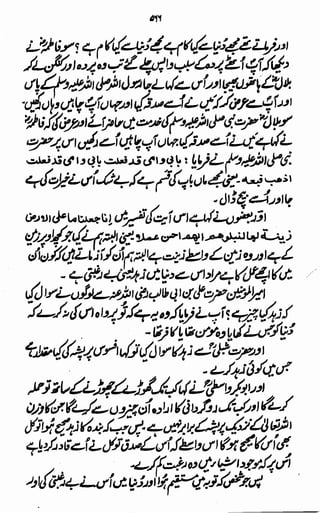 ۵۶۶
اور فرماتے تھے مجھے دُنیا سے کیا کام ہے مجھے دُنیا سے کیا کام ہے ؟ سو فاطمہؓ نے
دیکھا کہ آپؐ اُسے پردہ کے سبب واپس چلے گئے تب وہ پردہ اور کنگن لے کر
بلالؓ کے ہاتھوں بھیجا اور اُس سے کہا لے جا رسول اللہ صلی اللہ علیہ وسلم کے پاس
اور آپؐ سے عرض کر کہ میں نے اُسے صدقہ کیا اور جہاں آپؐ چاہیں وہاں رکھیں۔
سو بلالؓ حضرت نبی صلی اللہ علیہ وسلم کی خدمت میں حاضر آئے اور عرض کی کہ فاطمہؓ
نے کہا ہے میں نے اُسے صدقہ کیا جہاں آپ چاہیں اُسے رکھیں اس پر حضرت
نبی صلی اللہ علیہ وسلم نے فرمایا : بابی و امی قد فعلت بابی و امی قد فعلت
اذهب فبعه ۔ یعنی مجھے ماں باپ کی قسم ہے کہ بے شک اُس نے خیرات کی ہے
جا اور اُسے بیچ ڈال ۔
اور بعضوں نے کہا ہے اس آیت کی تفسیر میں انا جعلنا ما علی الارض
زینة لها لنبلوهم ایهم احسن عملا یعنی البتہ ہم نے کیا جو کچھ اوپر زمین
کے ہے اور وہ زمین کے واسطے زینت ہے البتہ ہم اُن کو آزماتے ہیں کون اُن
میں کا اچھے عمل کا ہے مراد اس سے دنیا میں زہد یعنی بے رغبتی ہے ۔
امیر المومنین حضرت علی بن ابی طالب رضی اللہ عنہ سے لوگوں نے سوال کیا
کہ زہد کیا چیز ہے ؟ آپ نے فرمایا کہ وہ یہ ہے کہ تو پرواہ اس کی نہ کرے کہ
دُنیا کو جس نے کھایا وہ مومن تھا یا کافر تھا ۔
اور حضرت شبلیؒ سے زہد کا سوال کیا تو کہا افسوس پر پشہ کی کیا مقدار ہے
جس میں کوئی زہد کرے ۔
اور ابوبکر واسطیؒ نے کہا کب تک گھوڑے کے چھوڑنے کے ساتھ تو حملہ
کرے گا اور کب تک روگردانی کا ارادہ اُن چیزوں سے کرے گا جن کا وزن
اللہ تعالیٰ کے نزدیک پر پشہ کے برابر نہیں ہے ۔ پس جب کہ بندہ کا زہد صحیح ہوا توکل
بھی اُس کا صحیح ہوگا اس واسطے کہ اُس کے صدق توکل نے اُسے قادر کر دیا ہے
اُس پر کہ موجود اشیا میں وہ رغبت کو کرے ۔
پس جو شخص کہ توبہ میں مستقیم ہوا اور دُنیا میں اُس نے بے رغبتی کی اور